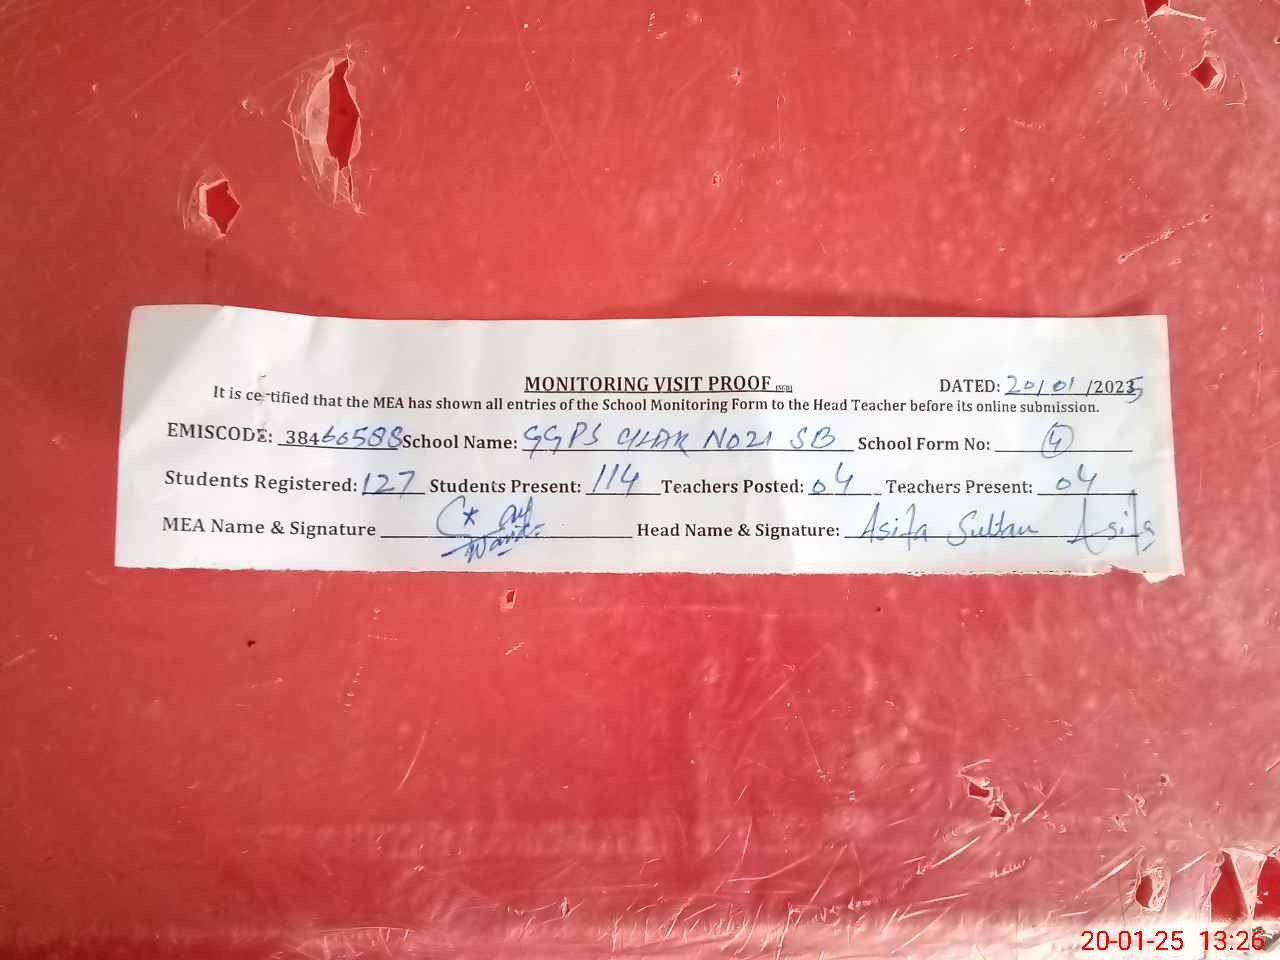 MONITORING VISIT PROOF (SGD) DATED: 20/01/2025
It is certified that the MEA has shown all entries of the School Monitoring Form to the Head Teacher before its online submission.
EMISCODE: 38460588 School Name: GGPS CHAK NO21 SB School Form No: 4
Students Registered: 127 Students Present: 114 Teachers Posted: 04 Teachers Present: 04
MEA Name & Signature Head Name & Signature: Asifa Sultan Asifa
20-01-25 13:26